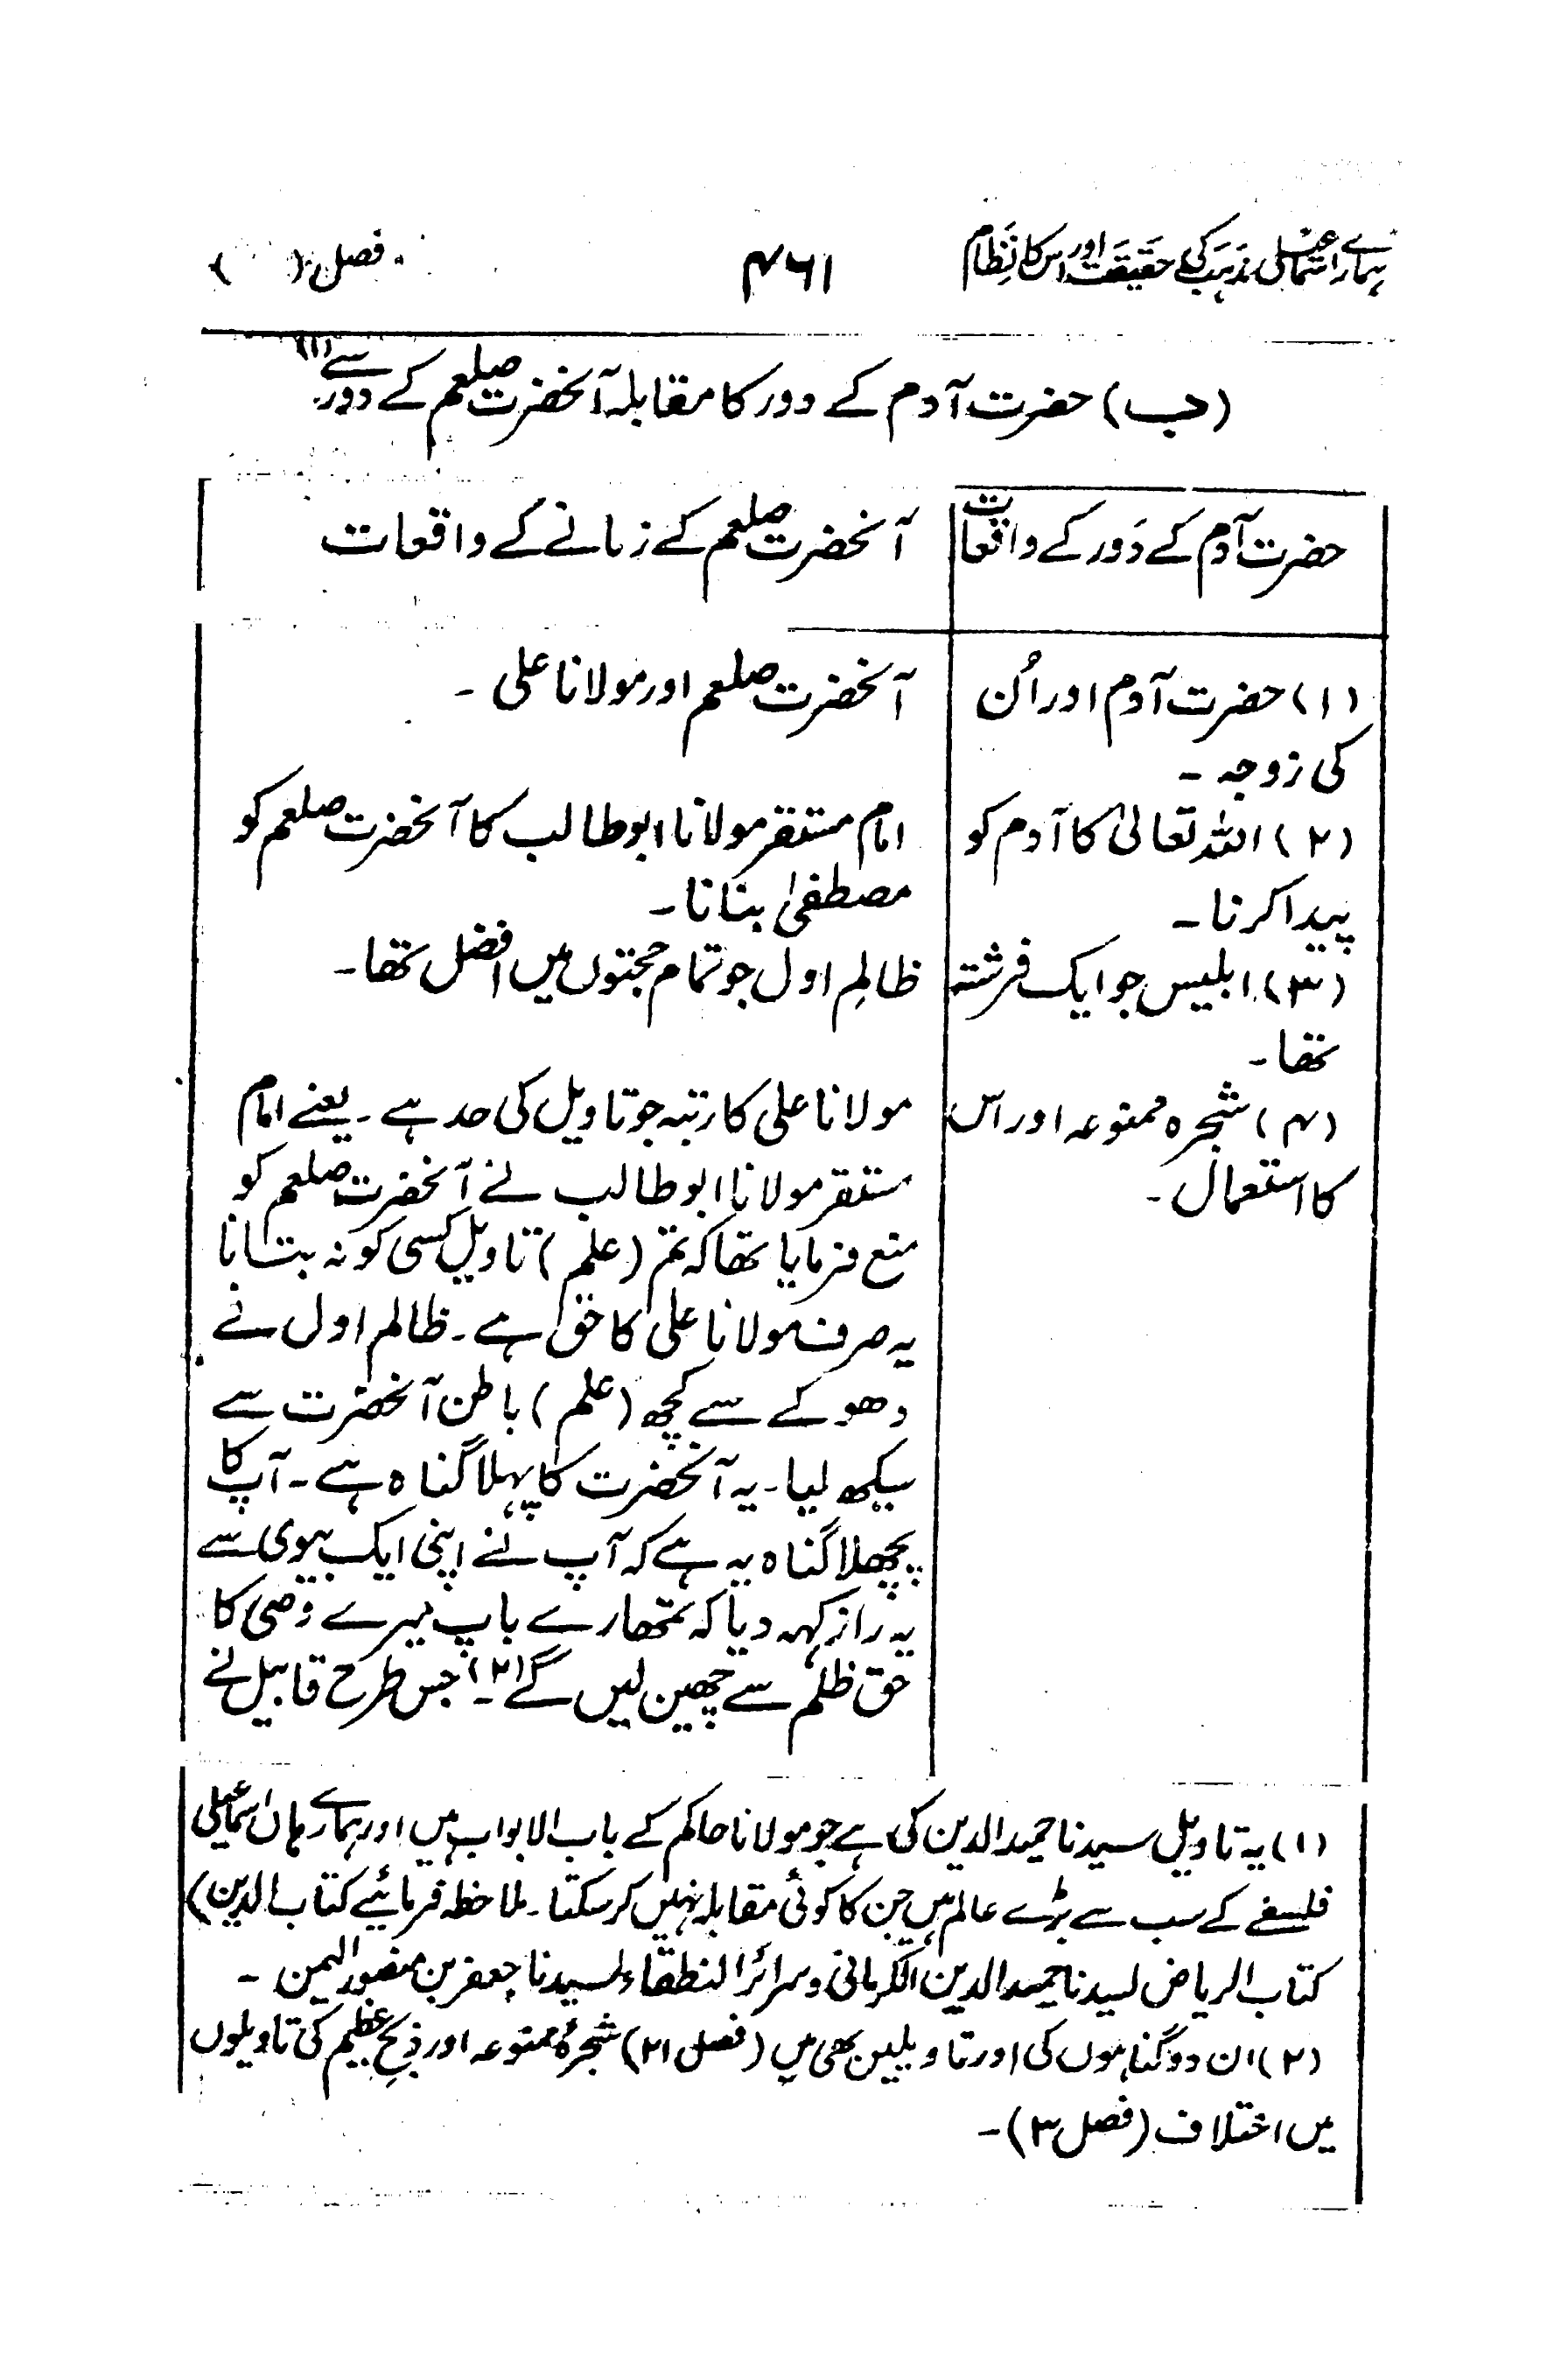 ہمارے اسماعیلی مذہب کی حقیقت اور اس کا نظام
۴۶۱
فصل (      )
(ب) حضرت آدم کے دور کا مقابلہ آنحضرت صلعم کے دور سے (۱)
حضرت آدم کے دَور کے واقعات
آنحضرت صلعم کے زمانے کے واقعات
(۱) حضرت آدم اور اُن
کی زوجہ ۔
آنحضرت صلعم اور مولانا علی ۔
(۲) اللہ تعالیٰ کا آدم کو
پیدا کرنا ۔
امام مستقر مولانا ابوطالب کا آنحضرت صلعم کو
مصطفیٰ بنانا ۔
(۳) ابلیس جو ایک فرشتہ
تھا ۔
ظالمِ اول جو تمام حجتوں میں افضل تھا ۔
(۴) شجرہ ممنوعہ اور اس
کا استعمال ۔
مولانا علی کا رتبہ جو تاویل کی حد ہے ۔ یعنے امام
مستقر مولانا ابوطالب نے آنحضرت صلعم کو
منع فرمایا تھا کہ تم (علم) تاویل کسی کو نہ بتانا
یہ صرف مولانا علی کا حق ہے ۔ ظالم اول نے
دھوکے سے کچھ (علم) باطن آنحضرت سے
سیکھ لیا ۔ یہ آنحضرت کا پہلا گناہ ہے ۔ آپ کا
پچھلا گناہ یہ ہے کہ آپ نے اپنی ایک بیوی سے
یہ راز کہہ دیا کہ تمھارے باپ میرے وصی کا
حق ظلم سے چھین لیں گے (۲) ۔ جس طرح قابیل نے
(۱) یہ تاویل سیدنا حمید الدین کی ہے جو مولانا حاکم کے باب الابواب ہیں اور ہمارے ہاں اسماعیلی
فلسفے کے سب سے بڑے عالم ہیں جن کا کوئی مقابلہ نہیں کر سکتا ۔ ملاحظہ فرمائیے کتاب الدین)
کتاب الریاض لسیدنا حمید الدین الکرمانی و سرائر النطقاء لسیدنا جعفر بن منصور الیمن ۔
(۲) ان دو گناہوں کی اور تاویلیں بھی ہیں (فصل ۲۱) شجرۂ ممنوعہ اور ذبحِ عظیم کی تاویلوں
میں اختلاف (فصل ۳) ۔